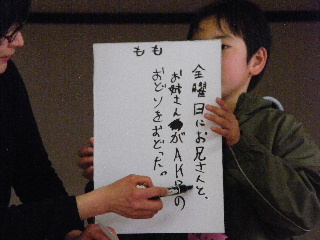 金曜日にお兄さんと、
お姉さんがAKBの
おどりをおどった。
もも